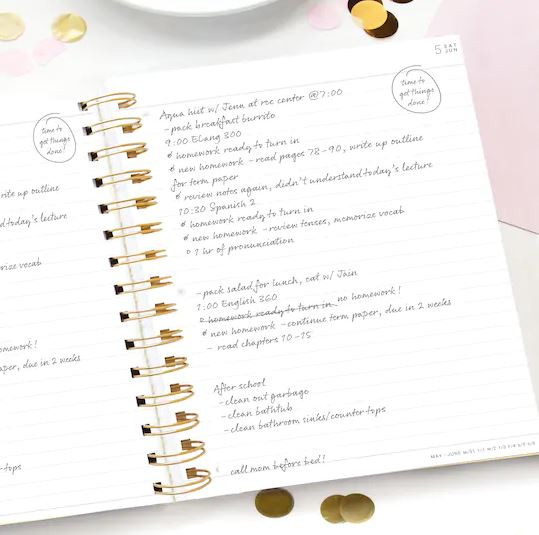 5 SAT
JUN
time to
get things
done!
Aqua hiit w/ Jenn at rec center @7:00
-pack breakfast burrito
9:00 ELang 300
* homework ready to turn in
* new homework - read pages 78-90, write up outline
for term paper
* review notes again, didn't understand today's lecture
10:30 Spanish 2
* homework ready to turn in
* new homework - review tenses, memorize vocab
* 1 hr of pronunciation
- pack salad for lunch, eat w/ Jain
1:00 English 360
* homework ready to turn in no homework!
* new homework - continue term paper, due in 2 weeks
- read chapters 10-15
After school
- clean out garbage
- clean bathtub
- clean bathroom sinks/counter tops
call mom before bed!
MAY - JUNE
time to
get things
done!
rite up outline
d today's lecture
orize vocab
omework!
aper, due in 2 weeks
-tops